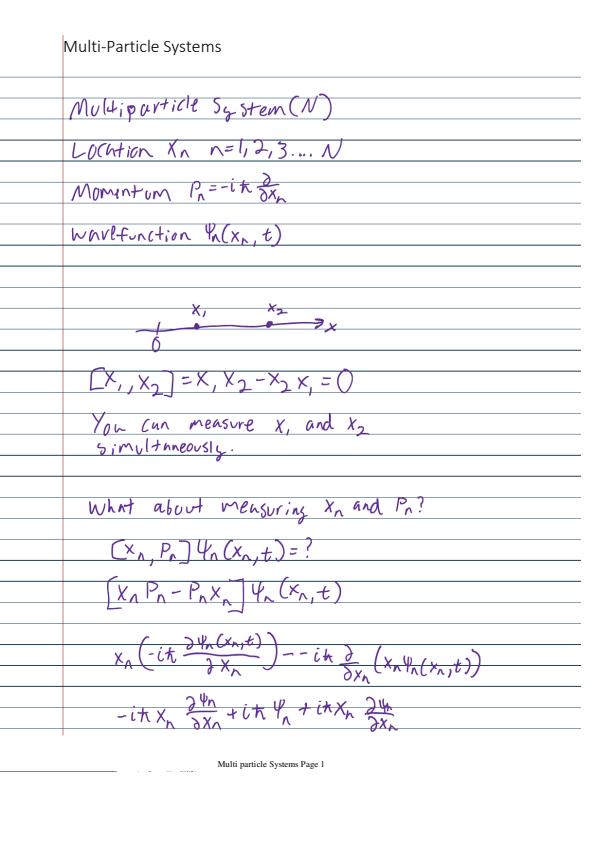 Multi-Particle Systems
Multiparticle System (N)
Location xₙ n=1,2,3.... N
Momentum Pₙ = -iħ ∂/∂xₙ
Wavefunction Ψₙ(xₙ, t)
x₁ x₂
0 x
[x₁, x₂] = x₁ x₂ - x₂ x₁ = 0
You can measure x₁ and x₂
simultaneously.
What about measuring xₙ and Pₙ?
[xₙ, Pₙ] Ψₙ(xₙ, t) = ?
[xₙ Pₙ - Pₙ xₙ] Ψₙ(xₙ, t)
xₙ (-iħ ∂Ψₙ(xₙ, t)/∂xₙ) - -iħ ∂/∂xₙ (xₙ Ψₙ(xₙ, t))
-iħ xₙ ∂Ψₙ/∂xₙ + iħ Ψₙ + iħ xₙ ∂Ψₙ/∂xₙ
Multi particle Systems Page 1